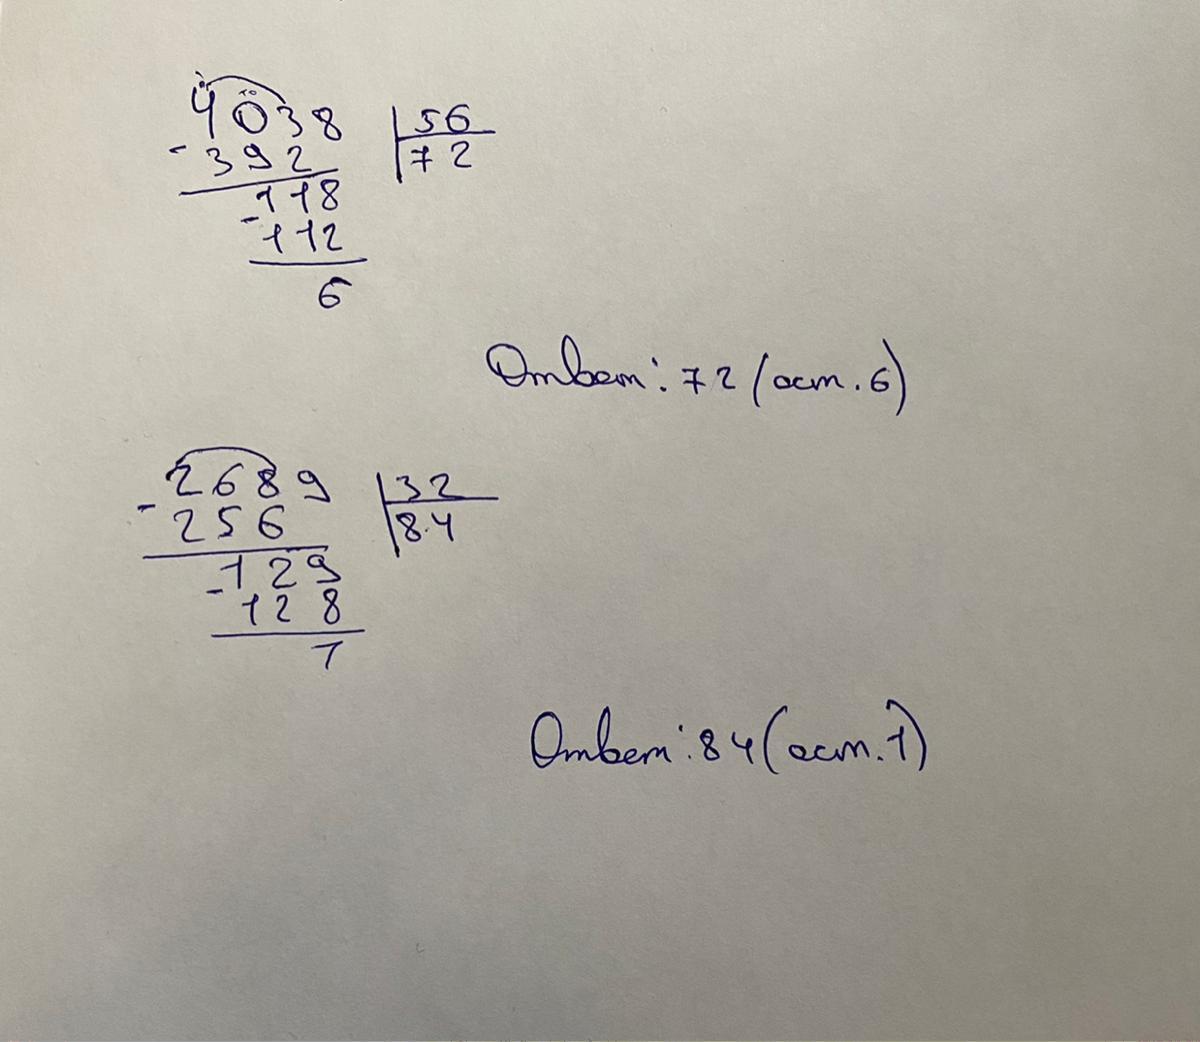 4038 |56
- 392 |72
118
- 112
6
Ответ: 72 (ост. 6)
2689 |32
- 256 |84
129
- 128
1
Ответ: 84 (ост. 1)